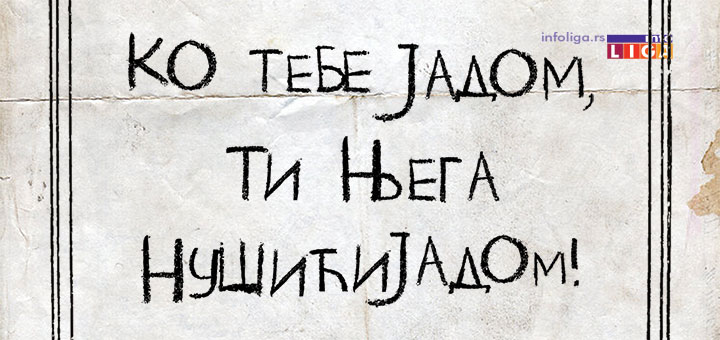 infoliga.rs
ИНФО
LIGA
КО ТЕБЕ ЈАДОМ,
ТИ ЊЕГА
НУШИЋИЈАДОМ!